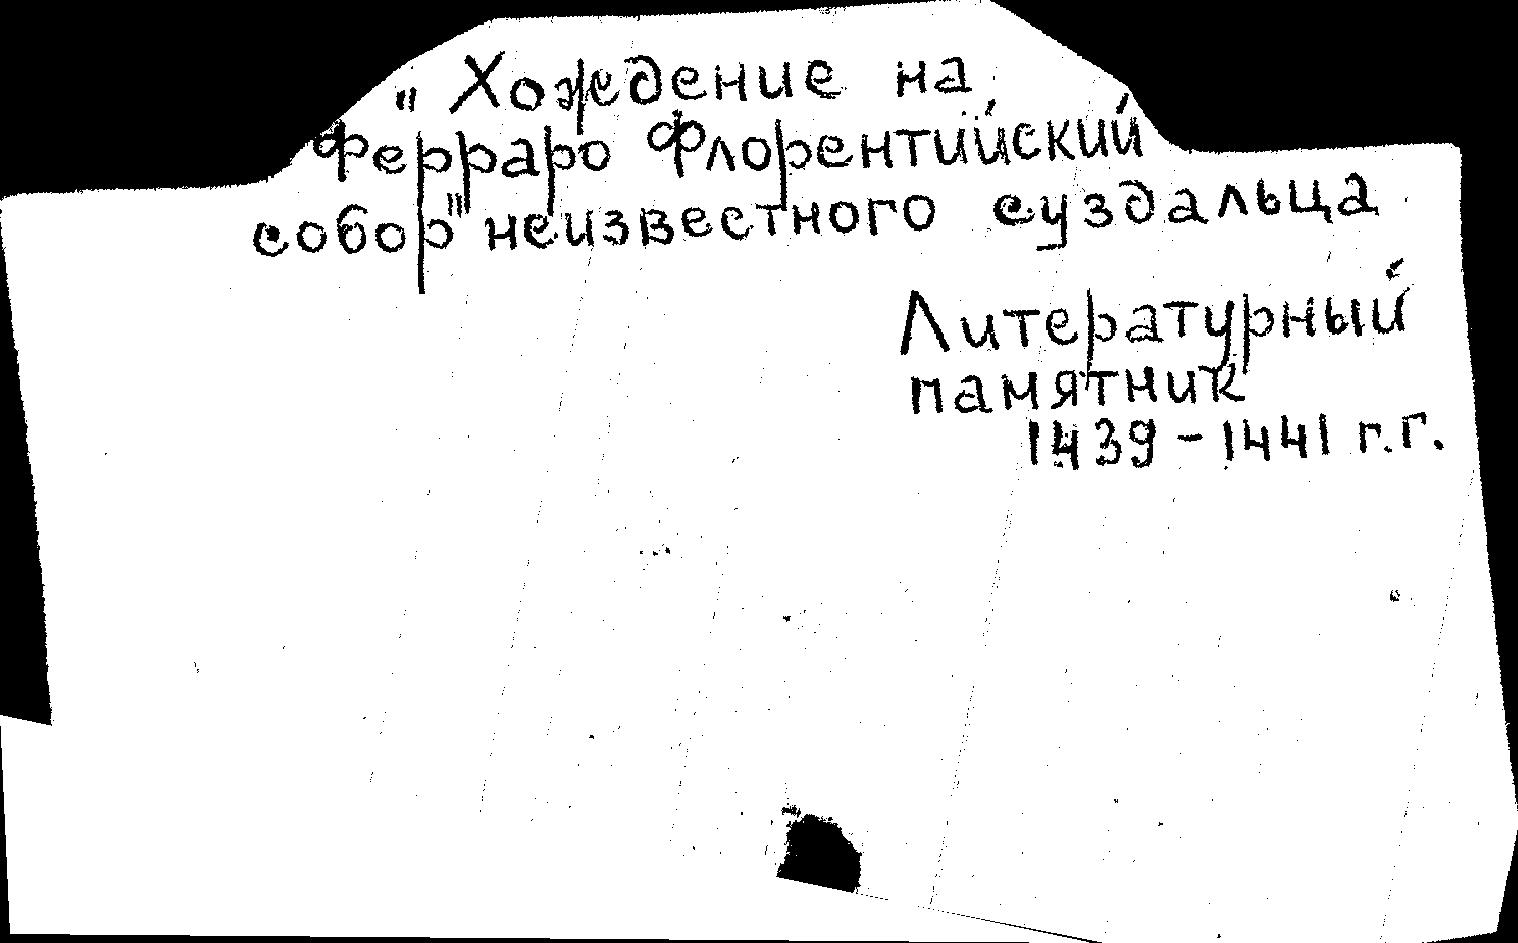 "Хождение на
Ферраро Флорентийский
собор" неизвестного суздальца
Литературный
памятник
1439 - 1441 г.г.